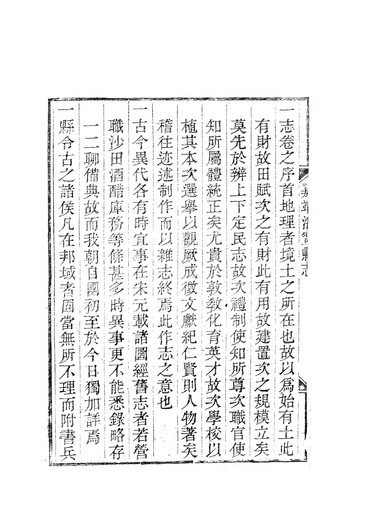 嘉靖海寧縣志
一志卷之序首地理者境土之所在也故以為始有土此
有財故田賦次之有財此有用故建置次之規模立矣
莫先於辨上下定民志故次禮制使知所尊次職官使
知所屬體統正矣尤貴於敦敎化育英才故次學校以
植其本次選舉以觀厥成徵文獻紀仁賢則人物著矣
稽往迹述制作而以雜志終焉此作志之意也
一古今異代各有時宜事在宋元載諸圖經舊志者若營
職沙田酒醋庫務等條甚多時異事更不能悉錄略存
一二聊備典故而我朝自國初至於今日獨加詳焉
一縣令古之諸侯凡在邦域者固當無所不理而附書兵